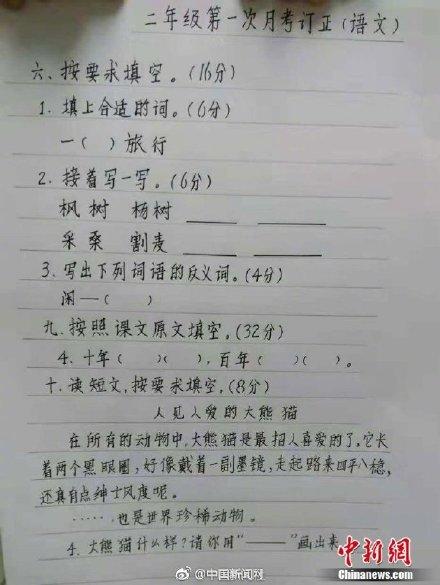 二年级第一次月考订正(语文)
六、按要求填空。(16分)
1. 填上合适的词。(6分)
一( )旅行
2. 接着写一写。(6分)
枫树 杨树 ____ ____
采桑 割麦 ____ ____
3. 写出下列词语的反义词。(4分)
闲—( )
九、按照课文原文填空。(32分)
4. 十年( )( ),百年( )( )。
十、读短文,按要求填空。(8分)
人见人爱的大熊猫
在所有的动物中,大熊猫是最招人喜爱的了。它长
着两个黑眼圈,好像戴着一副墨镜,走起路来四平八稳,
还真有点绅士风度呢。
……也是世界珍稀动物。
4. 大熊猫什么样?请你用"——"画出来
中新网
www.chinanews.com
@中国新闻网